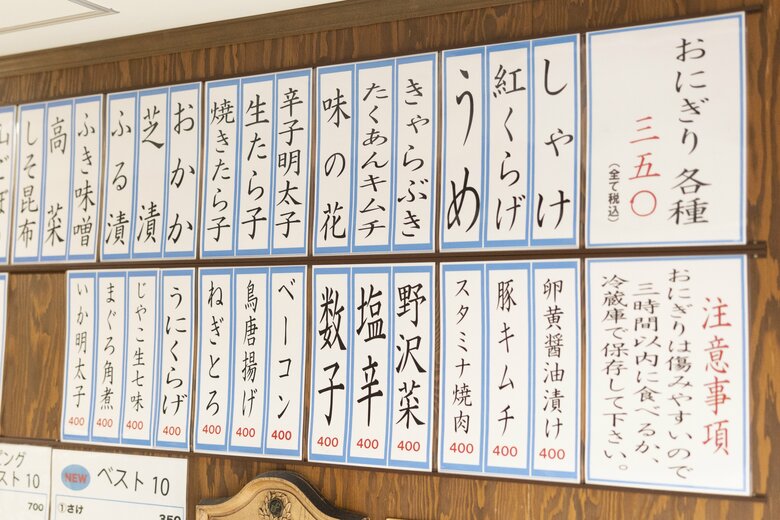 おにぎり 各種
三五〇
(全て税込)
しゃけ
紅くらげ
うめ
きゃらぶき
たくあんキムチ
味の花
辛子明太子
生たら子
焼きたら子
おかか
芝漬
ふる漬
ふき味噌
高菜
しそ昆布
注意事項
おにぎりは傷みやすいので
三時間以内に食べるか、
冷蔵庫で保存して下さい。
卵黄醤油漬け
400
豚キムチ
400
スタミナ焼肉
400
野沢菜
400
塩辛
400
数子
400
ベーコン
400
鳥唐揚げ
400
ねぎとろ
400
うにくらげ
400
じゃこ生七味
400
まぐろ角煮
400
いか明太子
400
スト10
700
NEW
ベスト10
①さけ
350